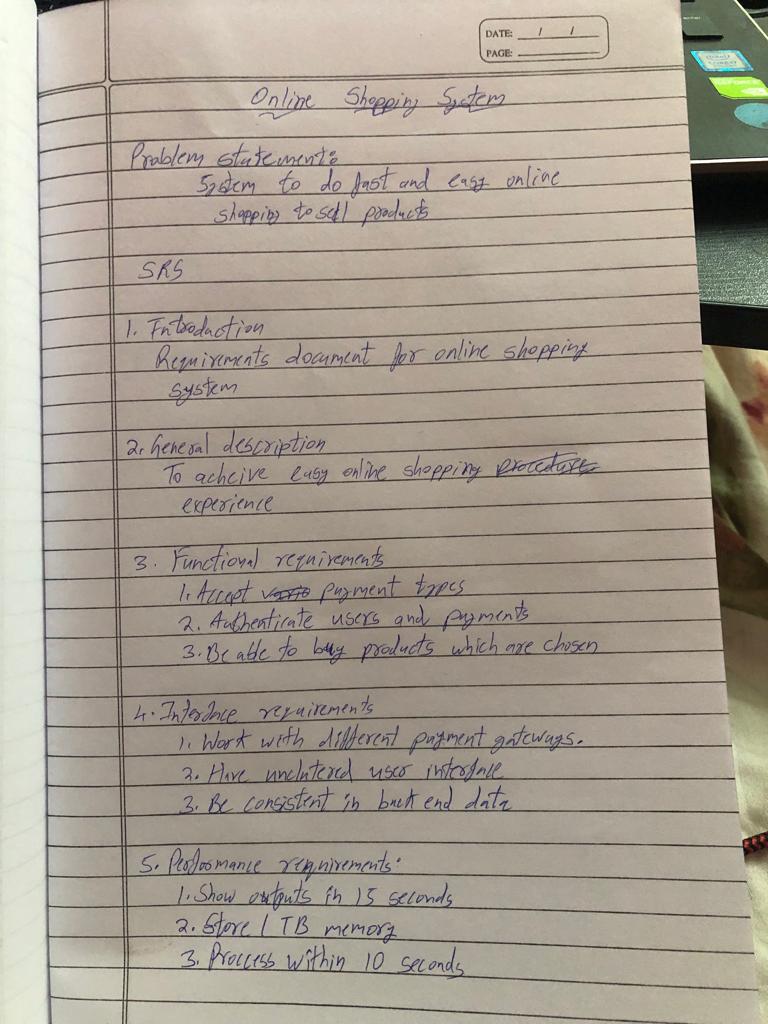 DATE: / /
PAGE:
Online Shopping System
Problem statement:
System to do fast and easy online
shopping to sell products
SRS
1. Introduction
Requirements document for online shopping
system
2. General description
To acheive easy online shopping procedure
experience
3. Functional requirements
1. Accept payment types
2. Authenticate users and payments
3. Be able to buy products which are chosen
4. Interface requirements
1. Work with different payment gateways.
2. Have unclutered user interface
3. Be consistent in back end data
5. Performance requirements:
1. Show outputs in 15 seconds
2. Store 1 TB memory
3. Proccess within 10 seconds